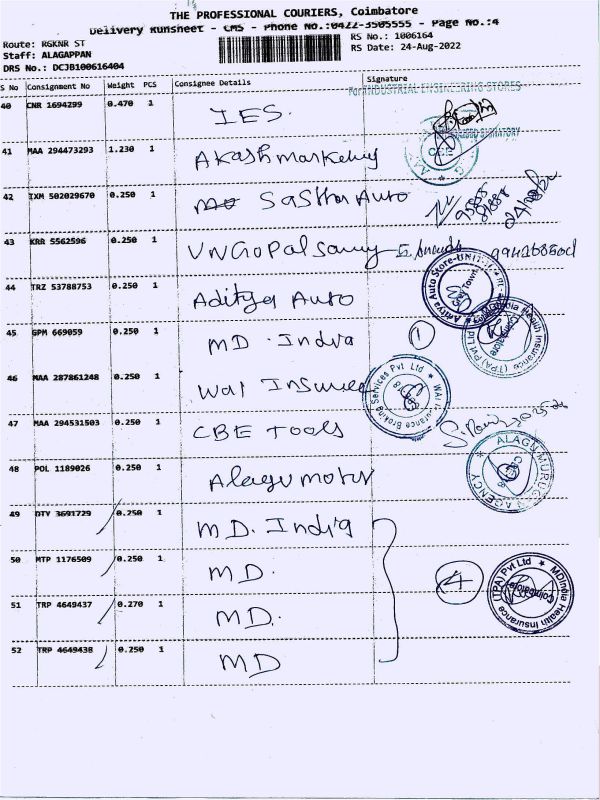 THE PROFESSIONAL COURIERS, Coimbatore
Delivery Runsheet - CMS - Phone No.:0422-3505555 - Page No.:4
Route: RGKNR ST
RS No.: 1006164
Staff: ALAGAPPAN
RS Date: 24-Aug-2022
DRS No.: DCJB100616404
S No Consignment No Weight PCS Consignee Details Signature
40 CNR 1694299 0.470 1 IES.
For INDUSTRIAL ENGINEERING STORES
41 MAA 294473293 1.230 1 Akash marketing
42 IXM 502029670 0.250 1 Sastha Auto
43 KRR 5562596 0.250 1 VNGopalsamy
44 TRZ 53788753 0.250 1 Aditya Auto
Aditya Auto Store
45 GPM 669059 0.250 1 MD. India 1
MDIndia Health Insurance (TPA) Pvt Ltd
46 MAA 287861248 0.250 1 Wal Insurce
WAI Insurance Broking Services Pvt Ltd
47 MAA 294531503 0.250 1 CBE Tools
48 POL 1189026 0.250 1 Alagumotor
ALAGU MURUGAN AGENCY
49 DTY 3691729 0.250 1 MD. India
50 MTP 1176509 0.250 1 MD. 4
MDIndia Health Insurance (TPA) Pvt Ltd
Coimbatore
51 TRP 4649437 0.270 1 MD.
52 TRP 4649438 0.250 1 MD